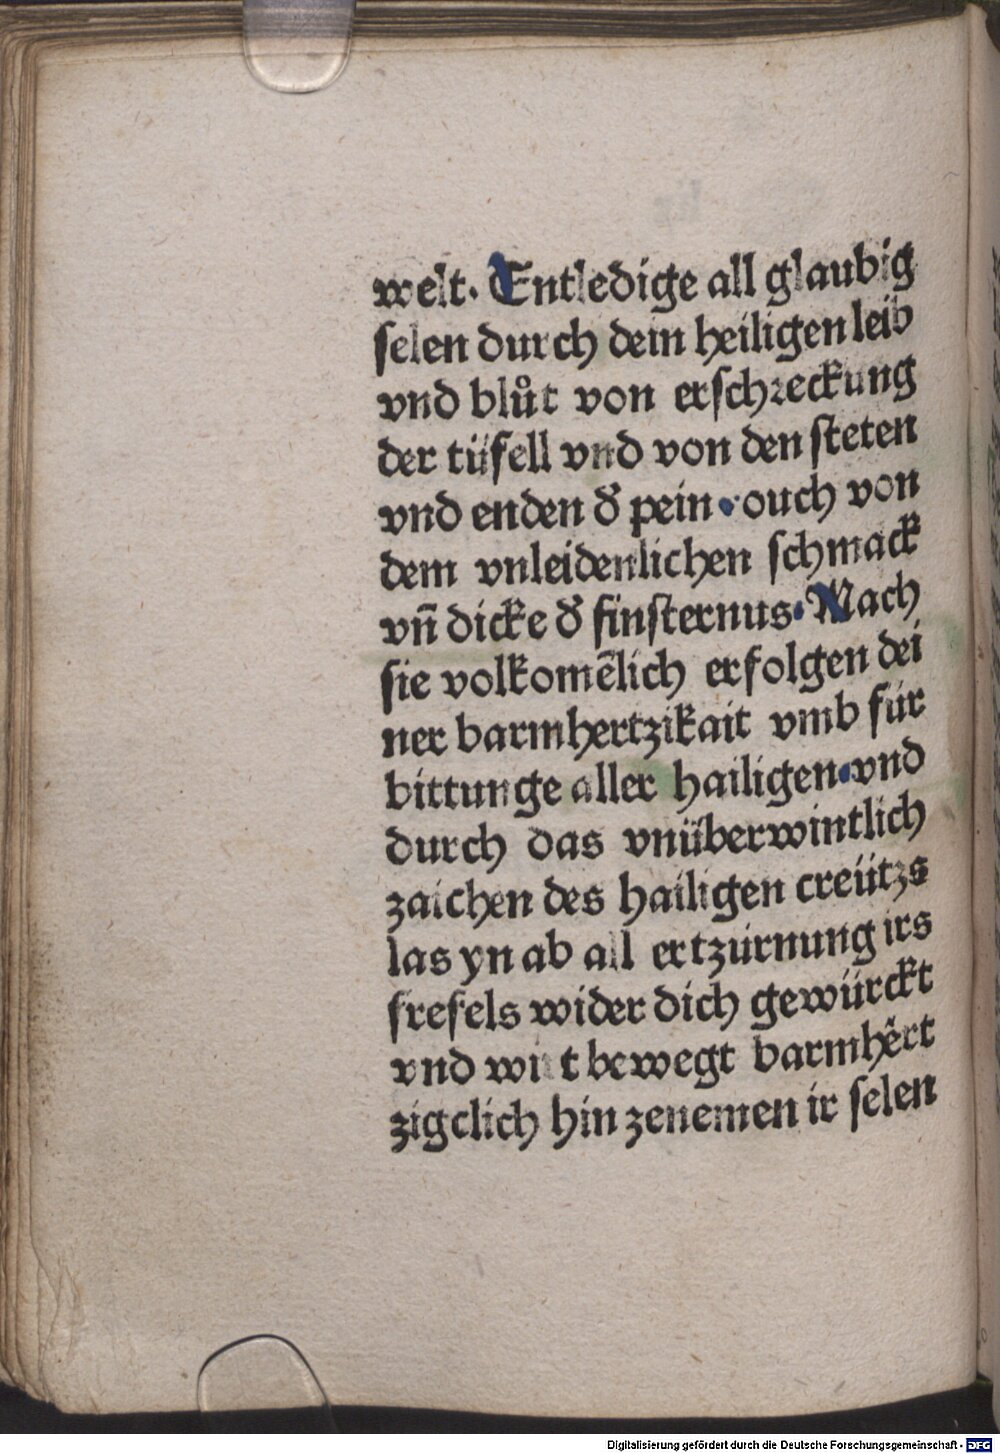 welt. Entledige all glaubig
ſelen durch dein heiligen leib
vnd blůt von erſchreckung
der tüfell vnd von den ſteten
vnd enden d̕ pein · ouch von
dem vnleidenlichen ſchmack
vn̄ dicke d̕ finſternus · Mach
ſie volkomēlich erfolgen dei
ner barmhertzikait vmb für
bittunge aller hailigen · vnd
durch das vnüberwintlich
zaichen des hailigen creützs
las yn ab all ertzürnung irs
frefels wider dich gewürckt
vnd wirt bewegt barmhert
zigclich hin zenemen ir ſelen
Digitalisierung gefördert durch die Deutsche Forschungsgemeinschaft - DFG